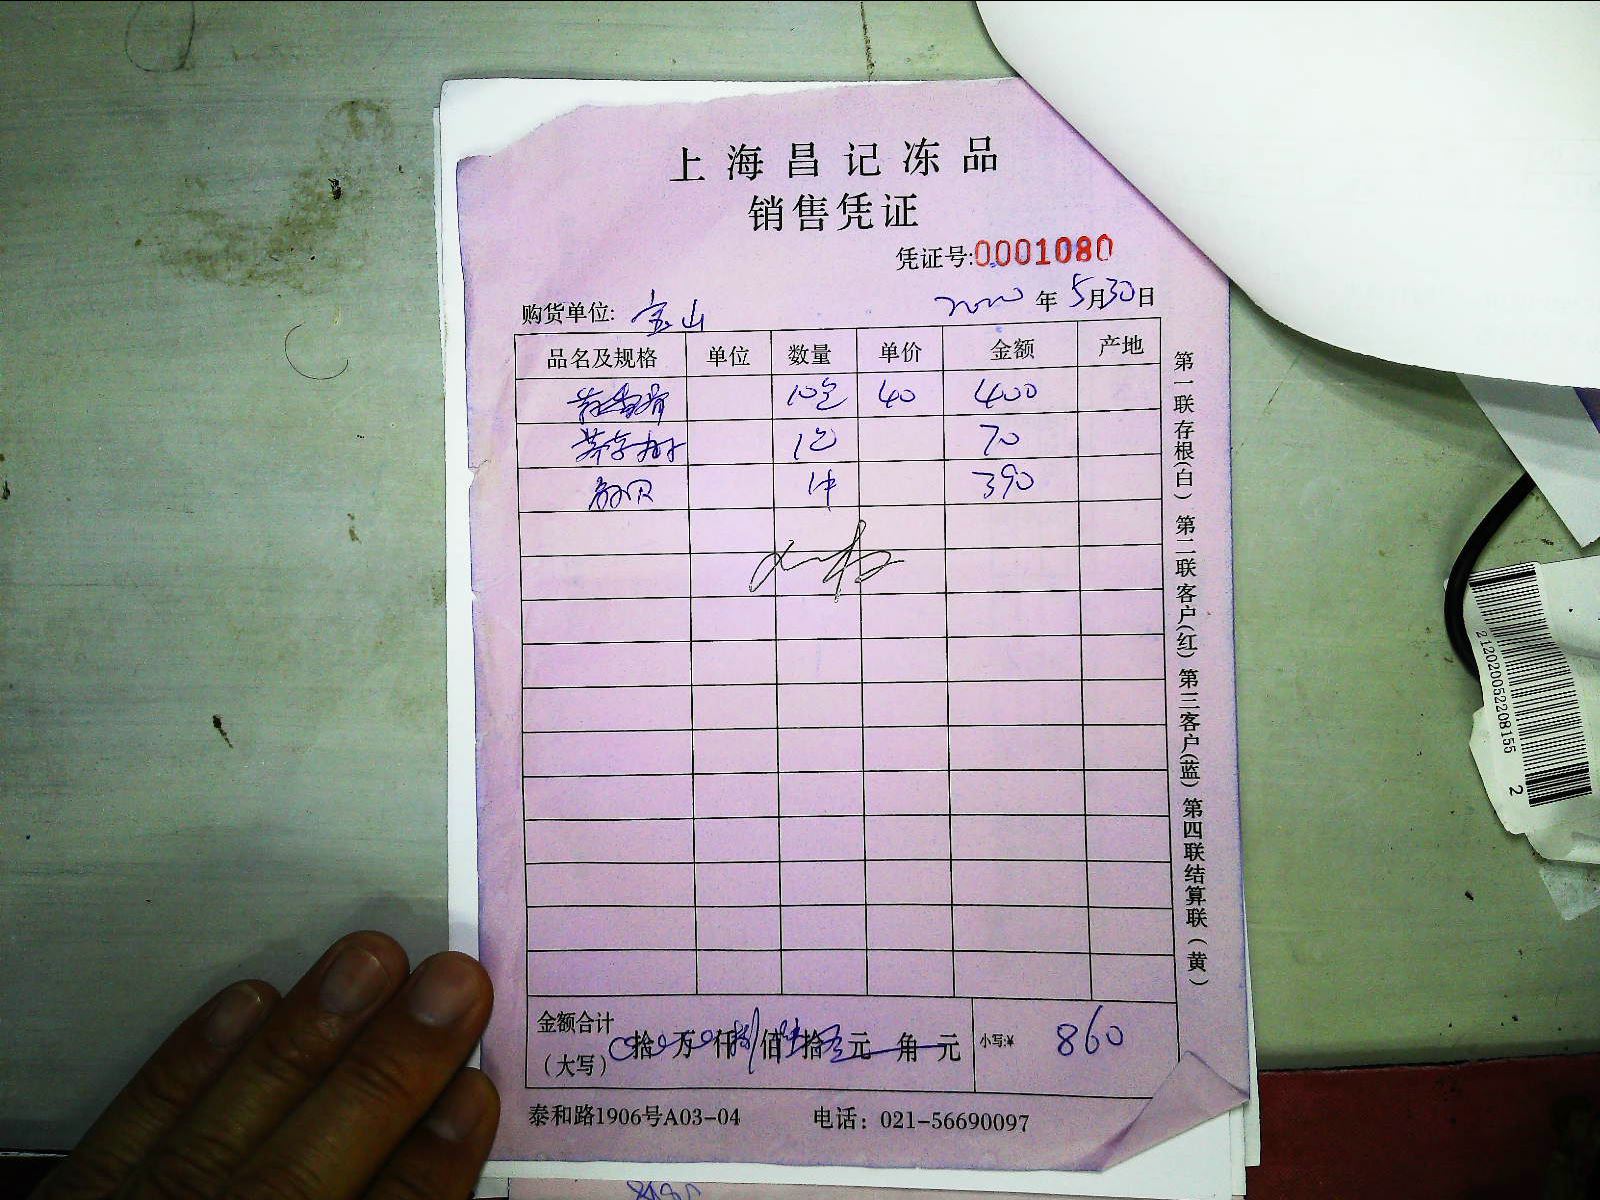 上海昌记冻品
销售凭证
凭证号:0001080
购货单位: 宝山 2020年5月30日
品名及规格 单位 数量 单价 金额 产地
10包 40 400
1包 70
1件 390
金额合计（大写） 拾 万 仟 捌佰 陆拾 元 角 元 小写:¥ 860
泰和路1906号A03-04 电话：021-56690097
第一联存根(白) 第二联客户(红) 第三客户(蓝) 第四联结算联(黄)
2120200522081552